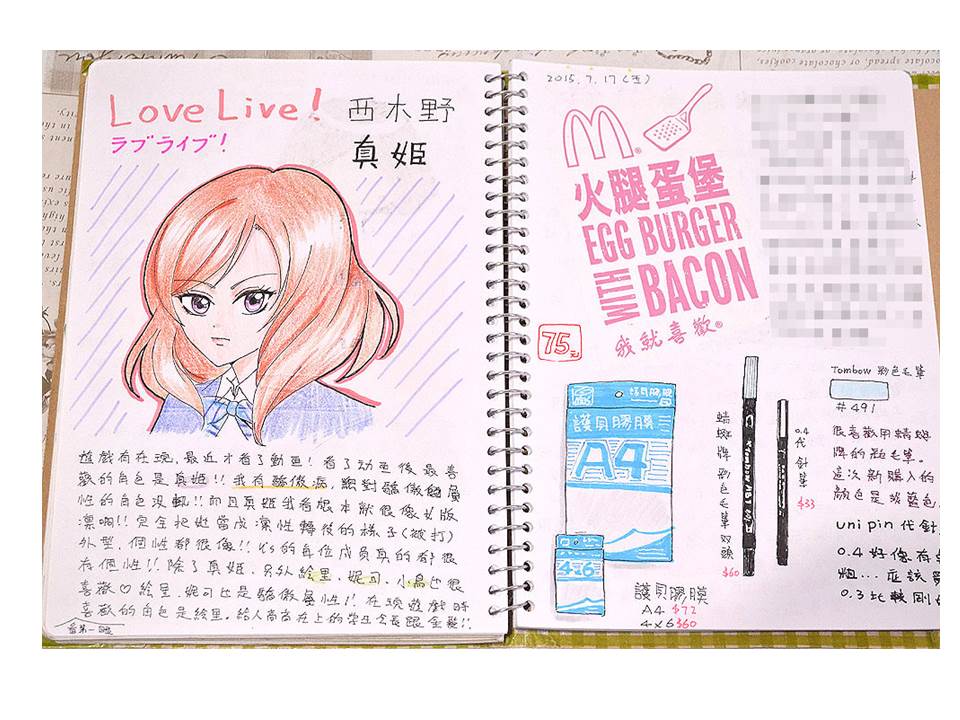 Love Live!
ラブライブ!
西木野
真姫
遊戲有在玩,最近才看了動画!看了动画後最喜
歡的角色是真姬!!我有驕傲病,絕對驕傲鬼屬
性的角色沒輒!!而且真姬我看根本就很像女版
凛啊!!完全把她當成凛性轉後的樣子(被打)
外型,個性都很像!!μ's的每位成員真的都很
有個性!!除了真姬,另外絵里、妮可、小鳥也很
喜歡♡絵里、妮可也是驕傲屬性!!在玩遊戲時
喜歡的角色是絵里,給人高高在上的學生会長跟金髮!!
2015.7.17(五)
火腿蛋堡
EGG BURGER
WITH BACON
我就喜歡®
75元
護貝膠膜
A4
4x6
護貝膠膜
A4 $72
4x6 $60
蜻蜓牌彩色毛筆双頭
$60
0.4代針筆
$33
Tombow 彩色毛筆
#491
很喜歡用蜻蜓
牌的彩毛筆。
這次新購入的
顏色是淡藍色
uni pin 代針
0.4 好像有点
粗...應該買
0.3 比較剛